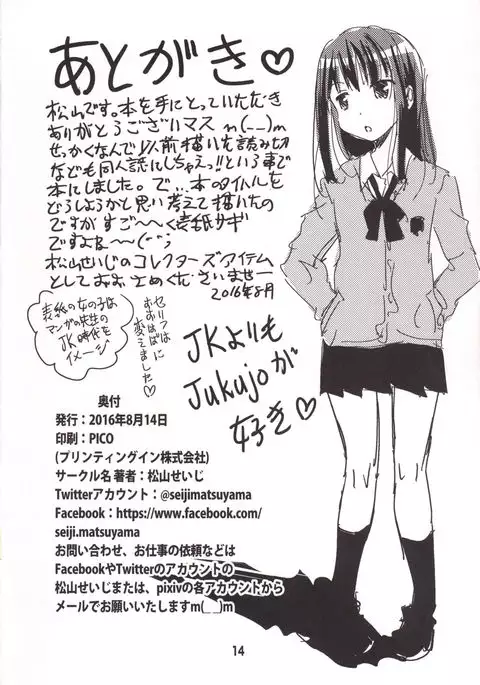 あとがき♡
松山です。本を手にとっていただき
ありがとうございマス m(__)m
せっかくなんで以前描いた読み切
なども同人誌にしちゃえっ!!という事で
本にしました。で…本のタイトルを
どうしようかと思い考えて描いたの
ですがすご〜く表紙サギ
ですよね〜〜(-"-;
松山せいじのコレクターズアイテム
としておおさめくださいませー
2016年8月
表紙の女の子は
マンガの先生の
JK時代を
イメージ
セリフは
大はばに
変えました♡
JKよりも
Jukujoが
好き♡
奥付
発行：2016年8月14日
印刷：PICO
(プリンティングイン株式会社)
サークル名 著者：松山せいじ
Twitterアカウント：@seijimatsuyama
Facebook：https://www.facebook.com/
seiji.matsuyama
お問い合わせ、お仕事の依頼などは
FacebookやTwitterのアカウントの
松山せいじまたは、pixivの各アカウントから
メールでお願いいたしますm(_ _)m
14